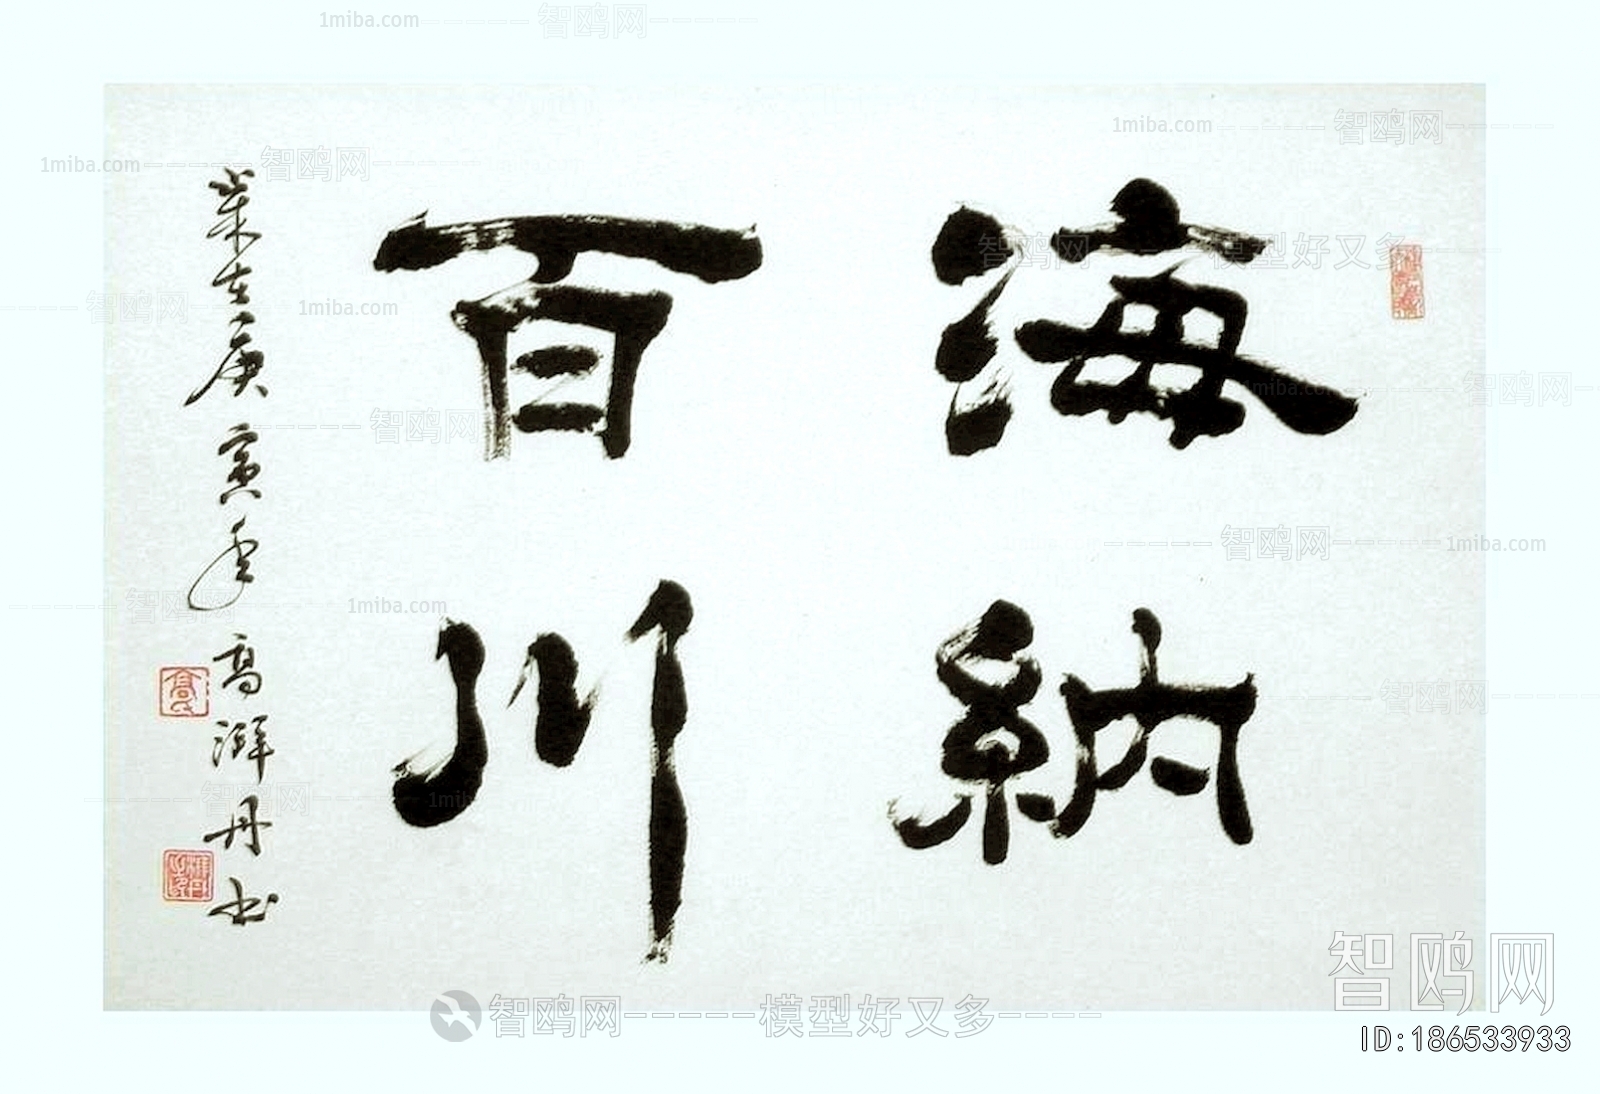 海納
百川
歲在庚寅年 高洋丹书
高氏
1miba.com
智鸥网
模型好又多
智鸥网
ID:186533933